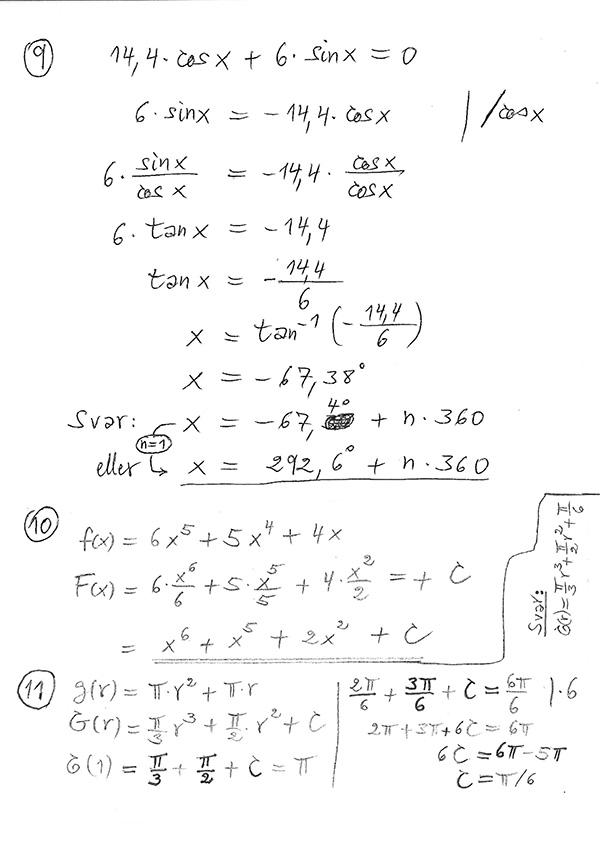 9 14,4·cosx + 6·sinx = 0
6·sinx = -14,4·cosx | /cosx
6· sinx/cosx = -14,4· cosx/cosx
6·tanx = -14,4
tanx = -14,4/6
x = tan⁻¹(-14,4/6)
x = -67,38°
Svar: x = -67,4° + n·360
n=1
eller ↳ x = 292,6° + n·360
10 f(x) = 6x⁵ + 5x⁴ + 4x
F(x) = 6·x⁶/6 + 5·x⁵/5 + 4·x²/2 = + C
= x⁶ + x⁵ + 2x² + C
11 g(r) = π·r² + π·r
G(r) = π/3 r³ + π/2·r² + C
G(1) = π/3 + π/2 + C = π
2π/6 + 3π/6 + C = 6π/6 |·6
2π + 3π + 6C = 6π
6C = 6π - 5π
C = π/6
Svar:
G(r) = π/3 r³ + π/2 r² + π/6